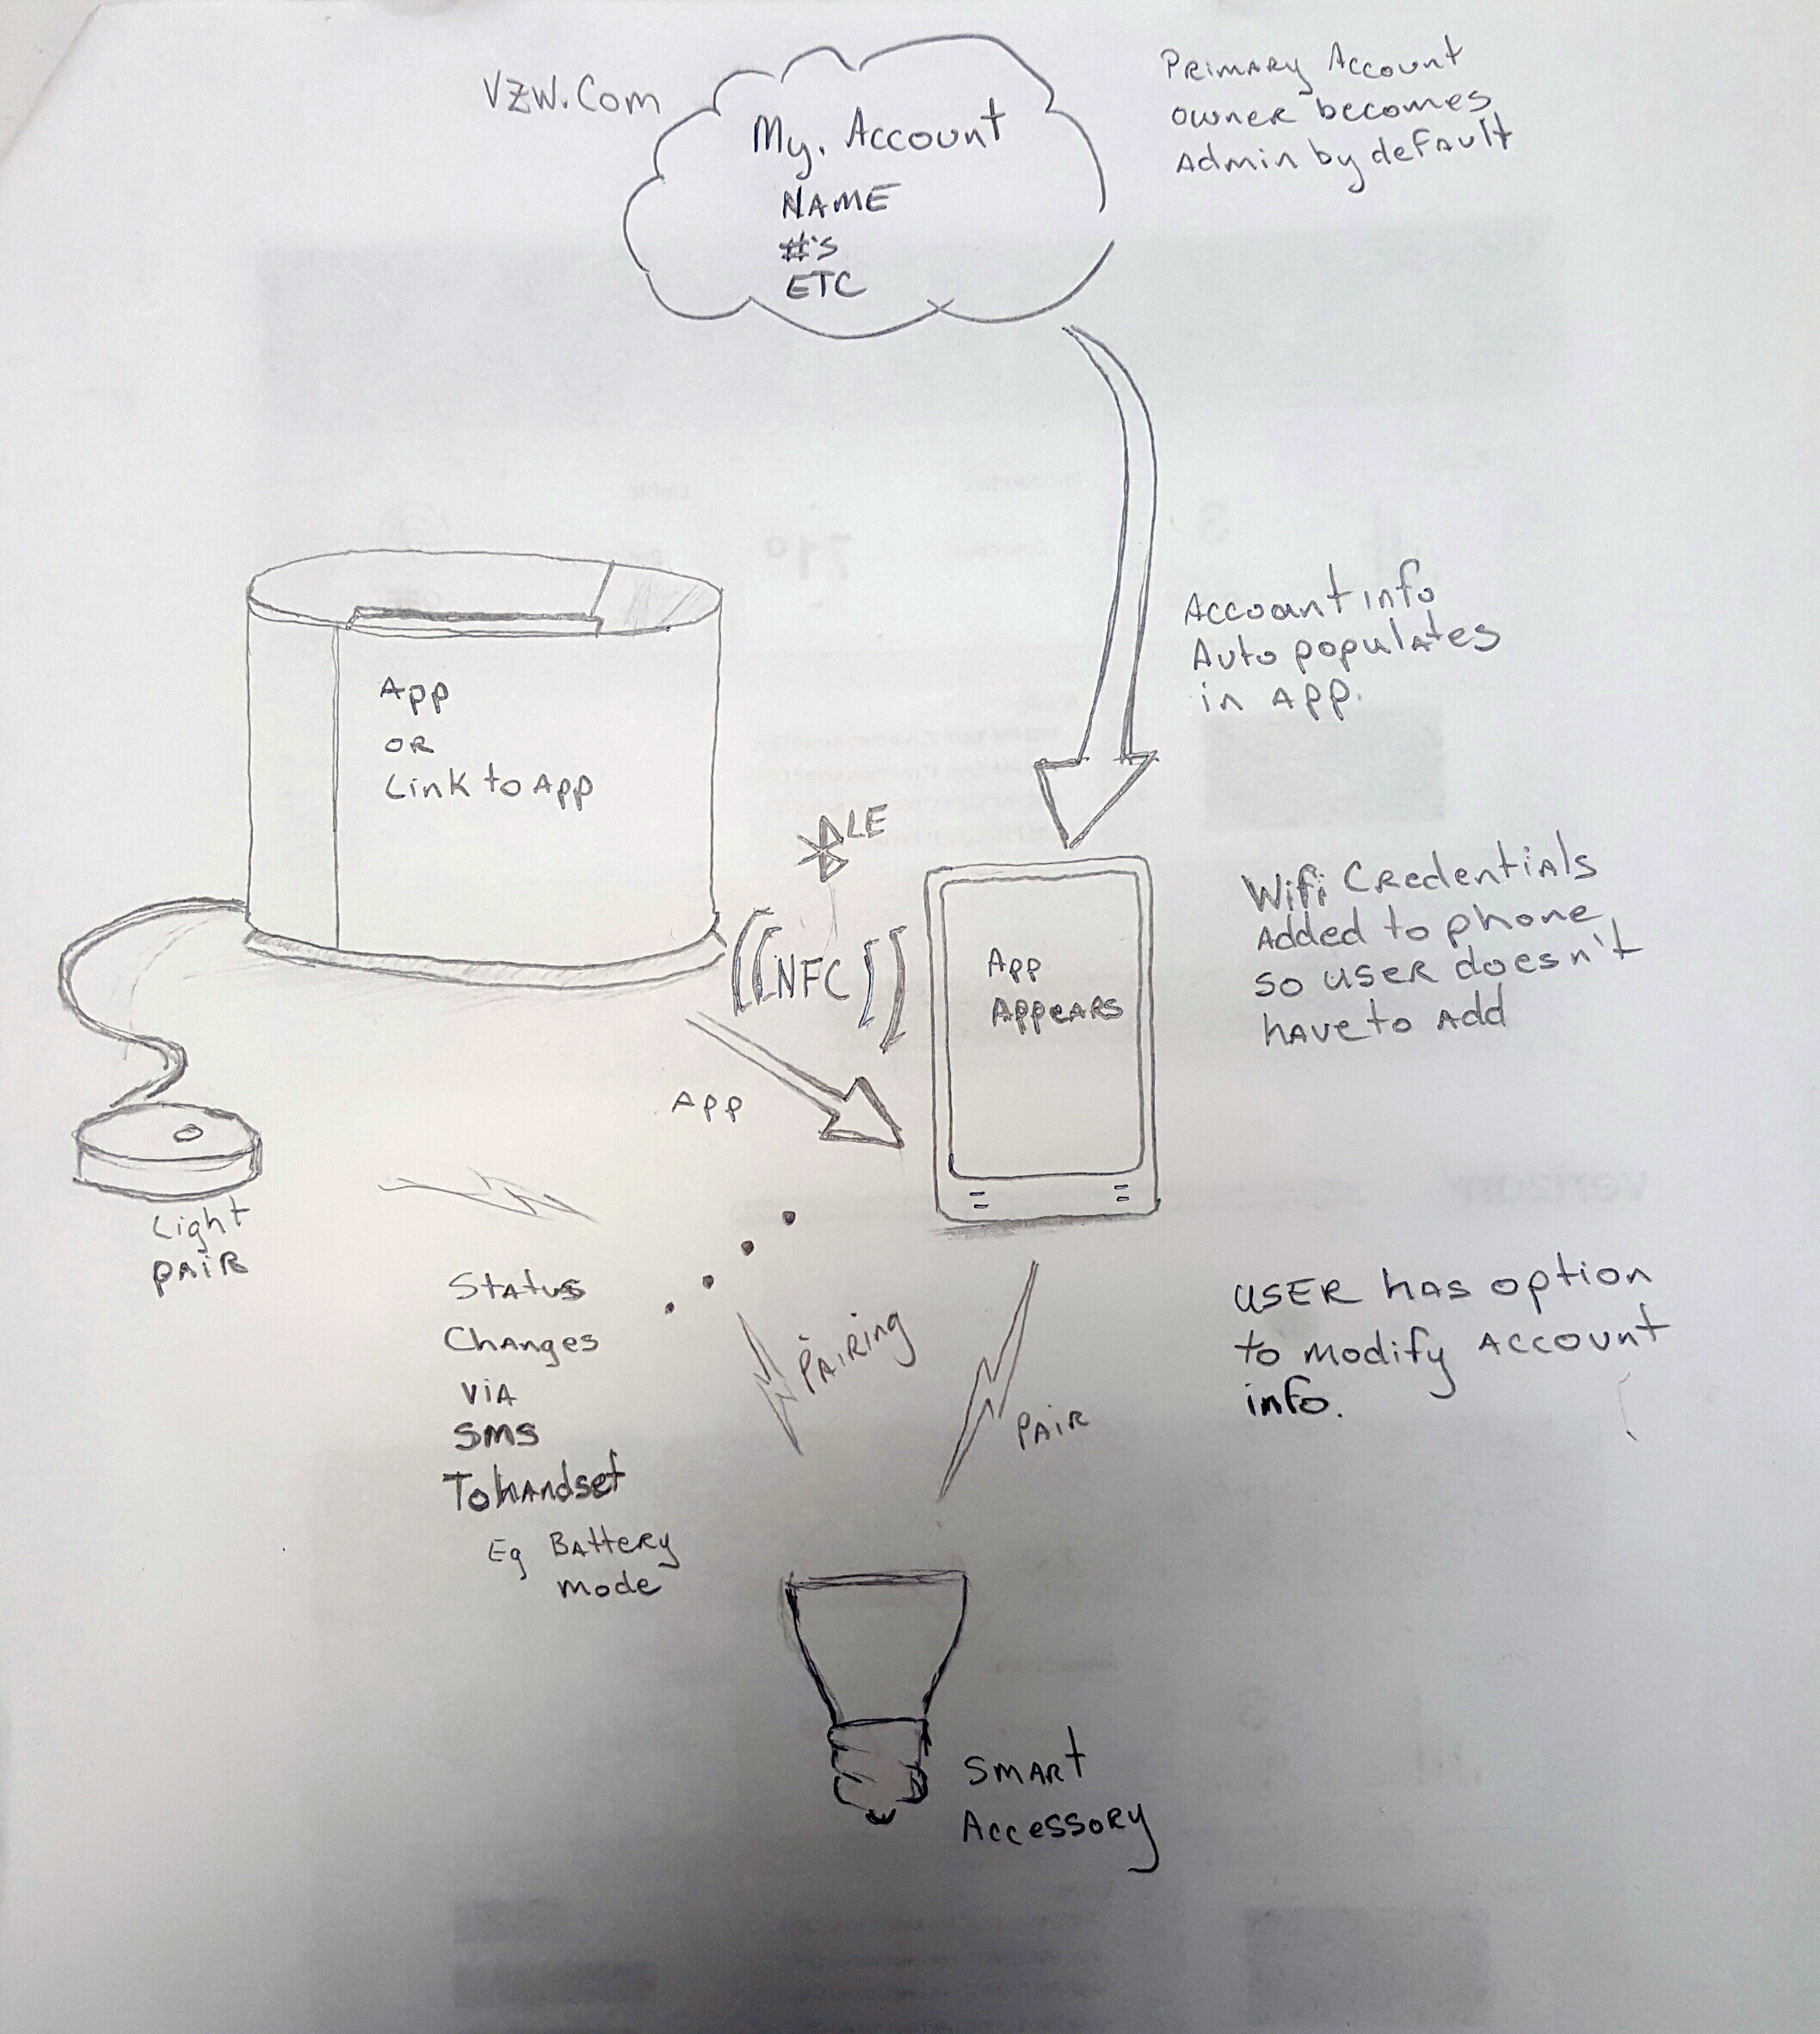 VZW.Com
My. Account
NAME
#'s
ETC
Primary Account
owner becomes
Admin by default
App
OR
Link to App
Account info
Auto populates
in App.
LE
NFC
App
Appears
Wifi Credentials
Added to phone
so user doesn't
have to Add
App
Light
pair
Status
Changes
via
SMS
To handset
Eg Battery
mode
Pairing
Pair
User has option
to modify Account
info.
Smart
Accessory
71°
verizon